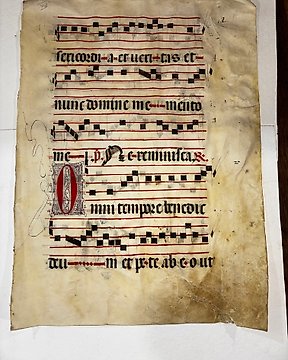 sericordi a et veri tas et
nunc domine me mento
me p. Ne reminisca
Omni tempore benedic
deu m et pete ab e o ut